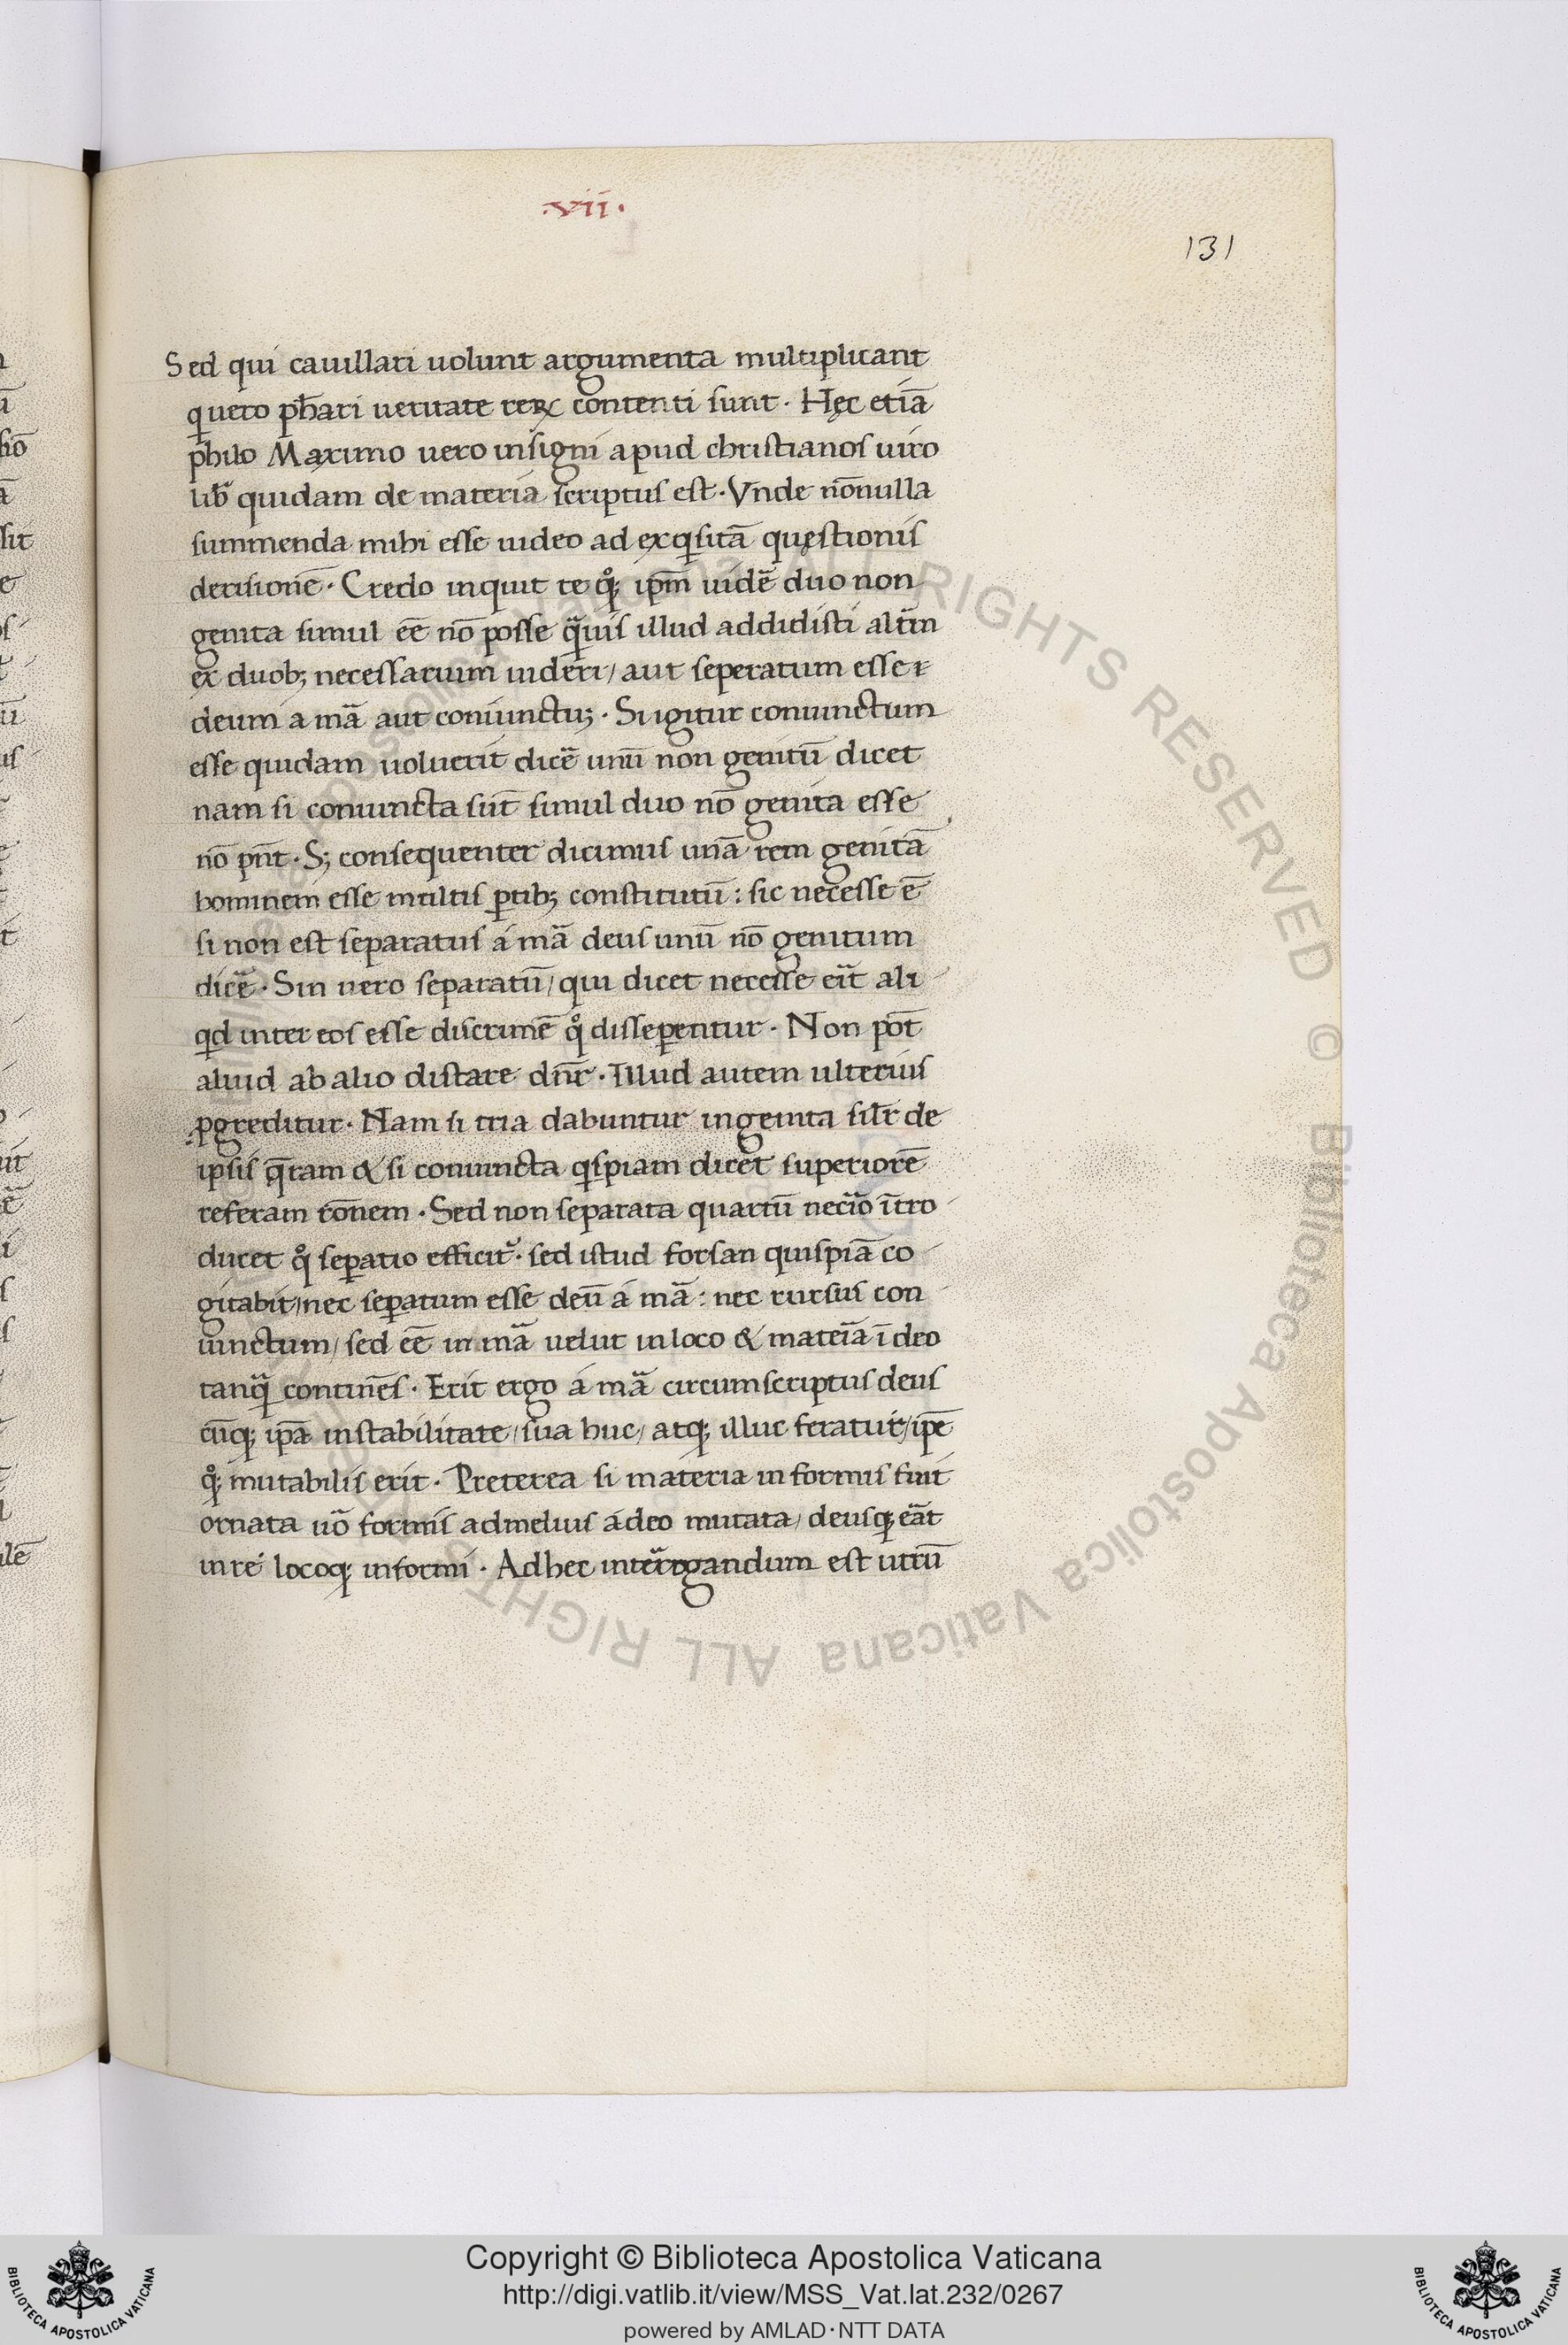 ·vii·
131
Sed qui cauillari uolunt argumenta multiplicant
q uero ꝓhari ueritate reꝝ contenti sunt· Hęc etiã
philo Maximo uero insigni apud christianos uiro
lib̄ quidam de materia scriptus est· Vnde nōnulla
summenda mihi esse uideo ad exqisitã quęstionis
decisionē· Credo inquit te qͦꝫ ipm̄ uidē duo non
genita simul eē nō posse qᷓuis illud addidisti altm̄
ex duobꝫ necessarium uideri/ aut seperatum esse
deum a mã aut coniunctuꝫ· Si igitur coniunctum
esse quidam uoluerit dicē unū non genitū dicet
nam si coniuncta sūt simul duo nō genita esse
nō pn̄t· Sꝫ consequenter dicimus unã rem genitã
hominem esse multis ꝑtibꝫ constitutū: sic necesse ē
si non est separatus á mã deus unū nō genitum
dicē· Sin uero separatū/ qui dicet necesse eit̄ ali
qd inter eos esse discrimē qͦ disseꝑentur· Non pot̄
aliud ab alio distare dn̄r· Illud autem ulterius
ꝓgreditur· Nam si tria dabuntur ingenita sil̄r de
ipsis q̄ram & si coniuncta qispiam dicet superiorē
referam rōnem· Sed non separata quartū neciõ ītro
ducet qͦ seꝑatio efficit᷑· sed istud forsan quispiã co
gitabit/ nec seꝑatum esse deū á mã: nec rursus con
iunctum/ sed eē in mã uelut in loco & mateīa ī deo
tanqᷓ contin̄es· Erit ergo á mã circumscriptus deus
cūqꝫ ipã instabilitate/ sua huc/ atqꝫ illuc feratur/ ipē
qͦꝫ mutabilis erit· Preterea si materia informis fuit
ornata uõ formis ad melius á deo mutata/ deusqꝫ eãt
in re locoqꝫ informi· Ad hec intērrogandum est utrū
Copyright © Biblioteca Apostolica Vaticana
http://digi.vatlib.it/view/MSS_Vat.lat.232/0267
powered by AMLAD·NTT DATA
BIBLIOTECA APOSTOLICA VATICANA
BIBLIOTECA APOSTOLICA VATICANA